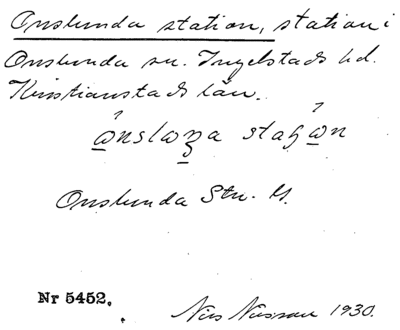 Onslunda station, station i
Onslunda sn. Ingelstads hd.
Kristianstads län.
Onslunda Stn. G.
Nr 5452.
Nils Nilsson 1930.